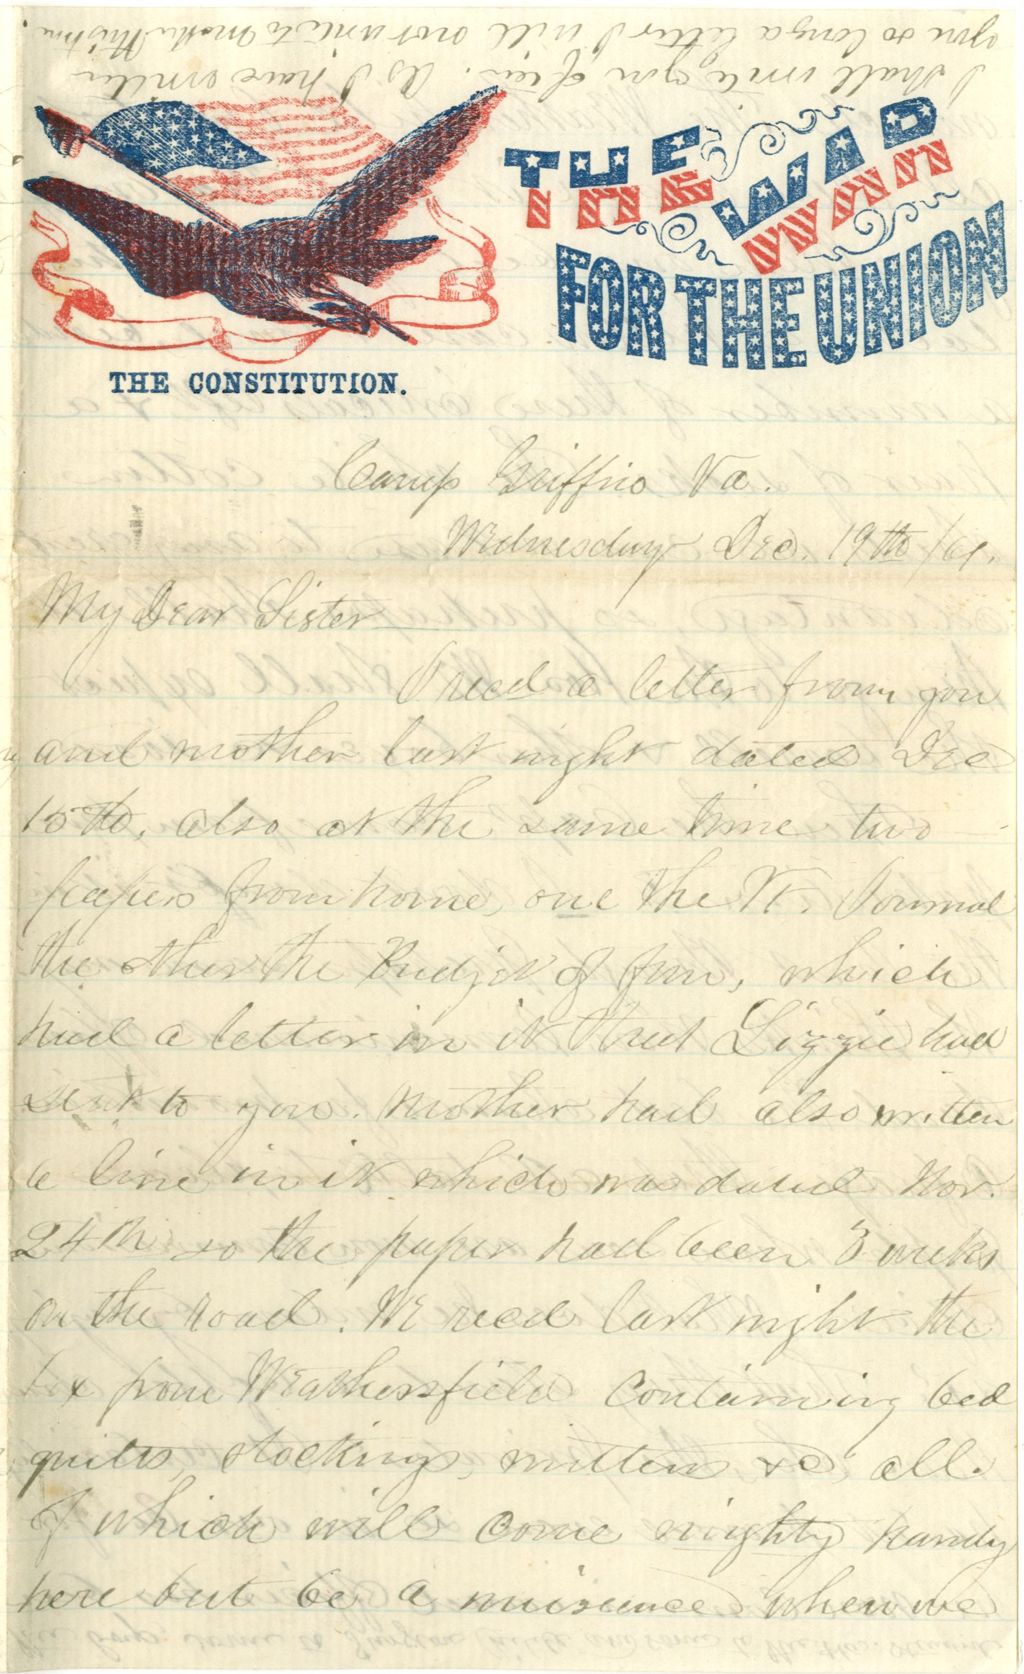 I shall write you of it. As I have written
you so long a letter I will not write to mother this time.
THE WAR
FOR THE UNION
THE CONSTITUTION.
Camp Griffin Va.
Wednesday Dec. 19th /61.
My Dear Sister
I recd a letter from you
and mother last night dated Dec
15th, also at the same time two
papers from home, one the Vt. Journal
the other the Budjet of fun, which
had a letter in it that Lizzie had
sent to you. Mother had also written
a line in it which was dated Nov.
24th so the paper had been 3 weeks
on the road. We recd last night the
box from Weathersfield containing bed
quilts, stockings, mittens &c all
of which will come mighty handy
here but be a nuisance when we